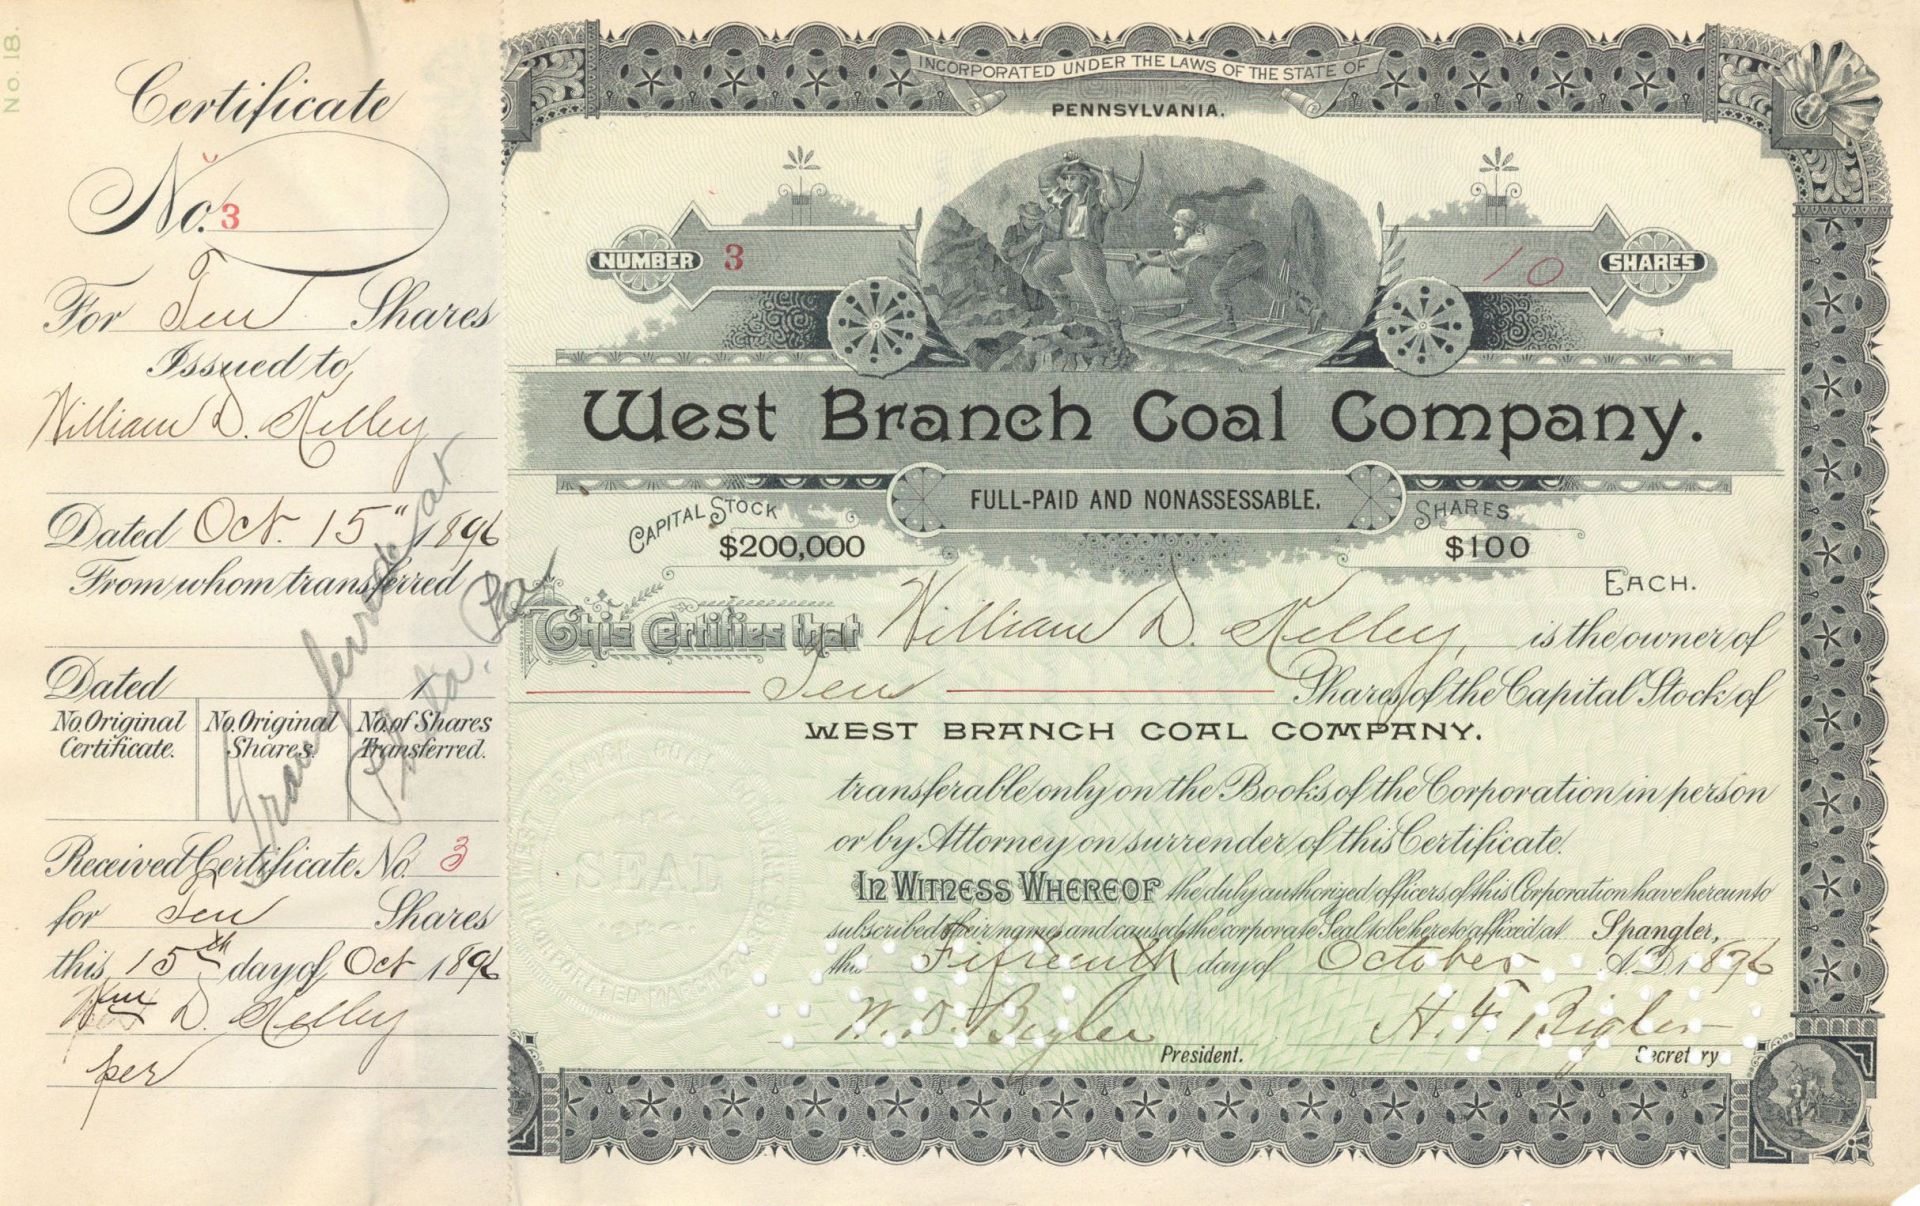 No. 18.
Certificate
No. 3
For Ten Shares
Issued to
William D. Kelley
Dated Oct. 15" 1896
From whom transferred
Dated 1
No. Original Certificate.
No. Original Shares.
No. of Shares Transferred.
Received Certificate No. 3
for Ten Shares
this 15th day of Oct 1896
Wm D. Kelley
per
Transferred at
Phila. Pa.
INCORPORATED UNDER THE LAWS OF THE STATE OF
PENNSYLVANIA.
NUMBER 3
10 SHARES
West Branch Coal Company.
FULL-PAID AND NONASSESSABLE.
CAPITAL STOCK
$200,000
SHARES
$100
EACH.
This Certifies that William D. Kelley, is the owner of
Ten Shares of the Capital Stock of
WEST BRANCH COAL COMPANY.
transferable only on the Books of the Corporation in person
or by Attorney on surrender of this Certificate.
IN WITNESS WHEREOF the duly authorized officers of this Corporation have hereunto
subscribed their names and caused the corporate Seal to be hereto affixed at Spangler,
this Fifteenth day of October A.D. 1896
W. D. Bigler
President.
H. F. Bigler
Secretary
WEST BRANCH COAL COMPANY
SEAL
INCORPORATED MARCH